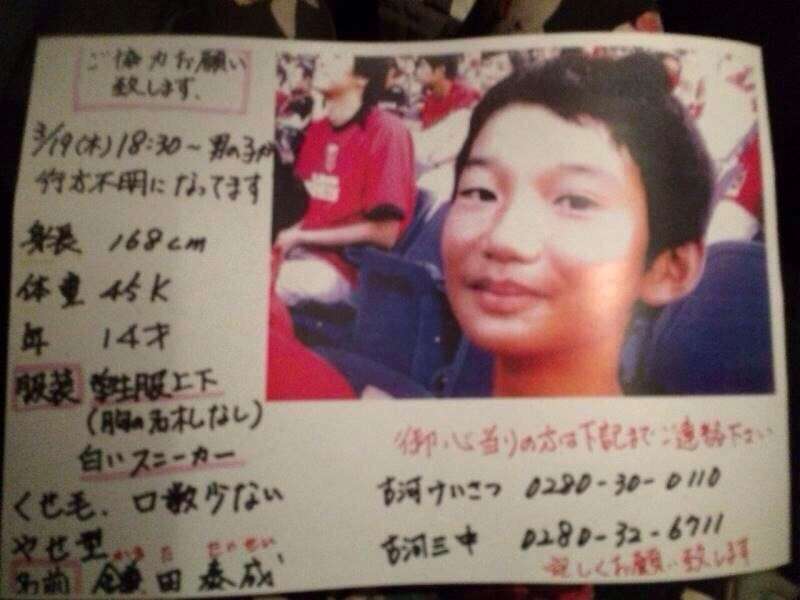 ご協力お願い
致します、
3/19(木)18:30～男の子が
行方不明になってます
身長 168cm
体重 45K
年 14才
服装 学生服上下
(胸の名札なし)
白いスニーカー
くせ毛、口数少ない
やせ型
かまた たいせい
名前 鎌田泰成
御心当りの方は下記までご連絡下さい
古河けいさつ 0280-30-0110
古河三中 0280-32-6711
宜しくお願い致します